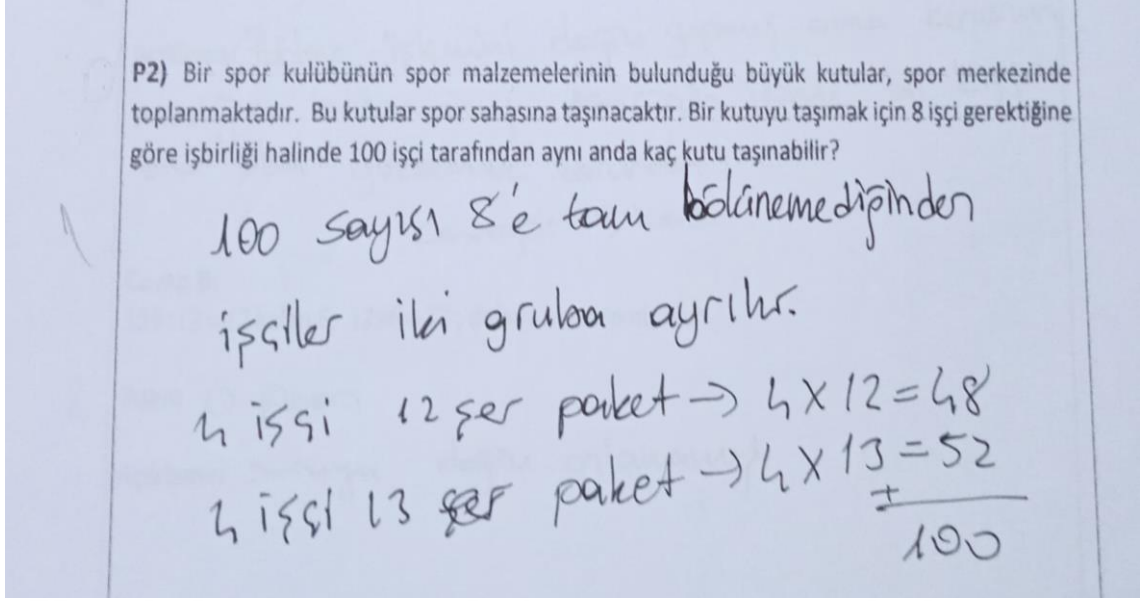 P2) Bir spor kulübünün spor malzemelerinin bulunduğu büyük kutular, spor merkezinde
toplanmaktadır. Bu kutular spor sahasına taşınacaktır. Bir kutuyu taşımak için 8 işçi gerektiğine
göre işbirliği halinde 100 işçi tarafından aynı anda kaç kutu taşınabilir?
100 sayısı 8'e tam bölünemediğinden
işçiler iki gruba ayrılır.
4 işçi 12 şer paket → 4 X 12 = 48
4 işçi 13 şer paket → 4 X 13 = 52
+
100